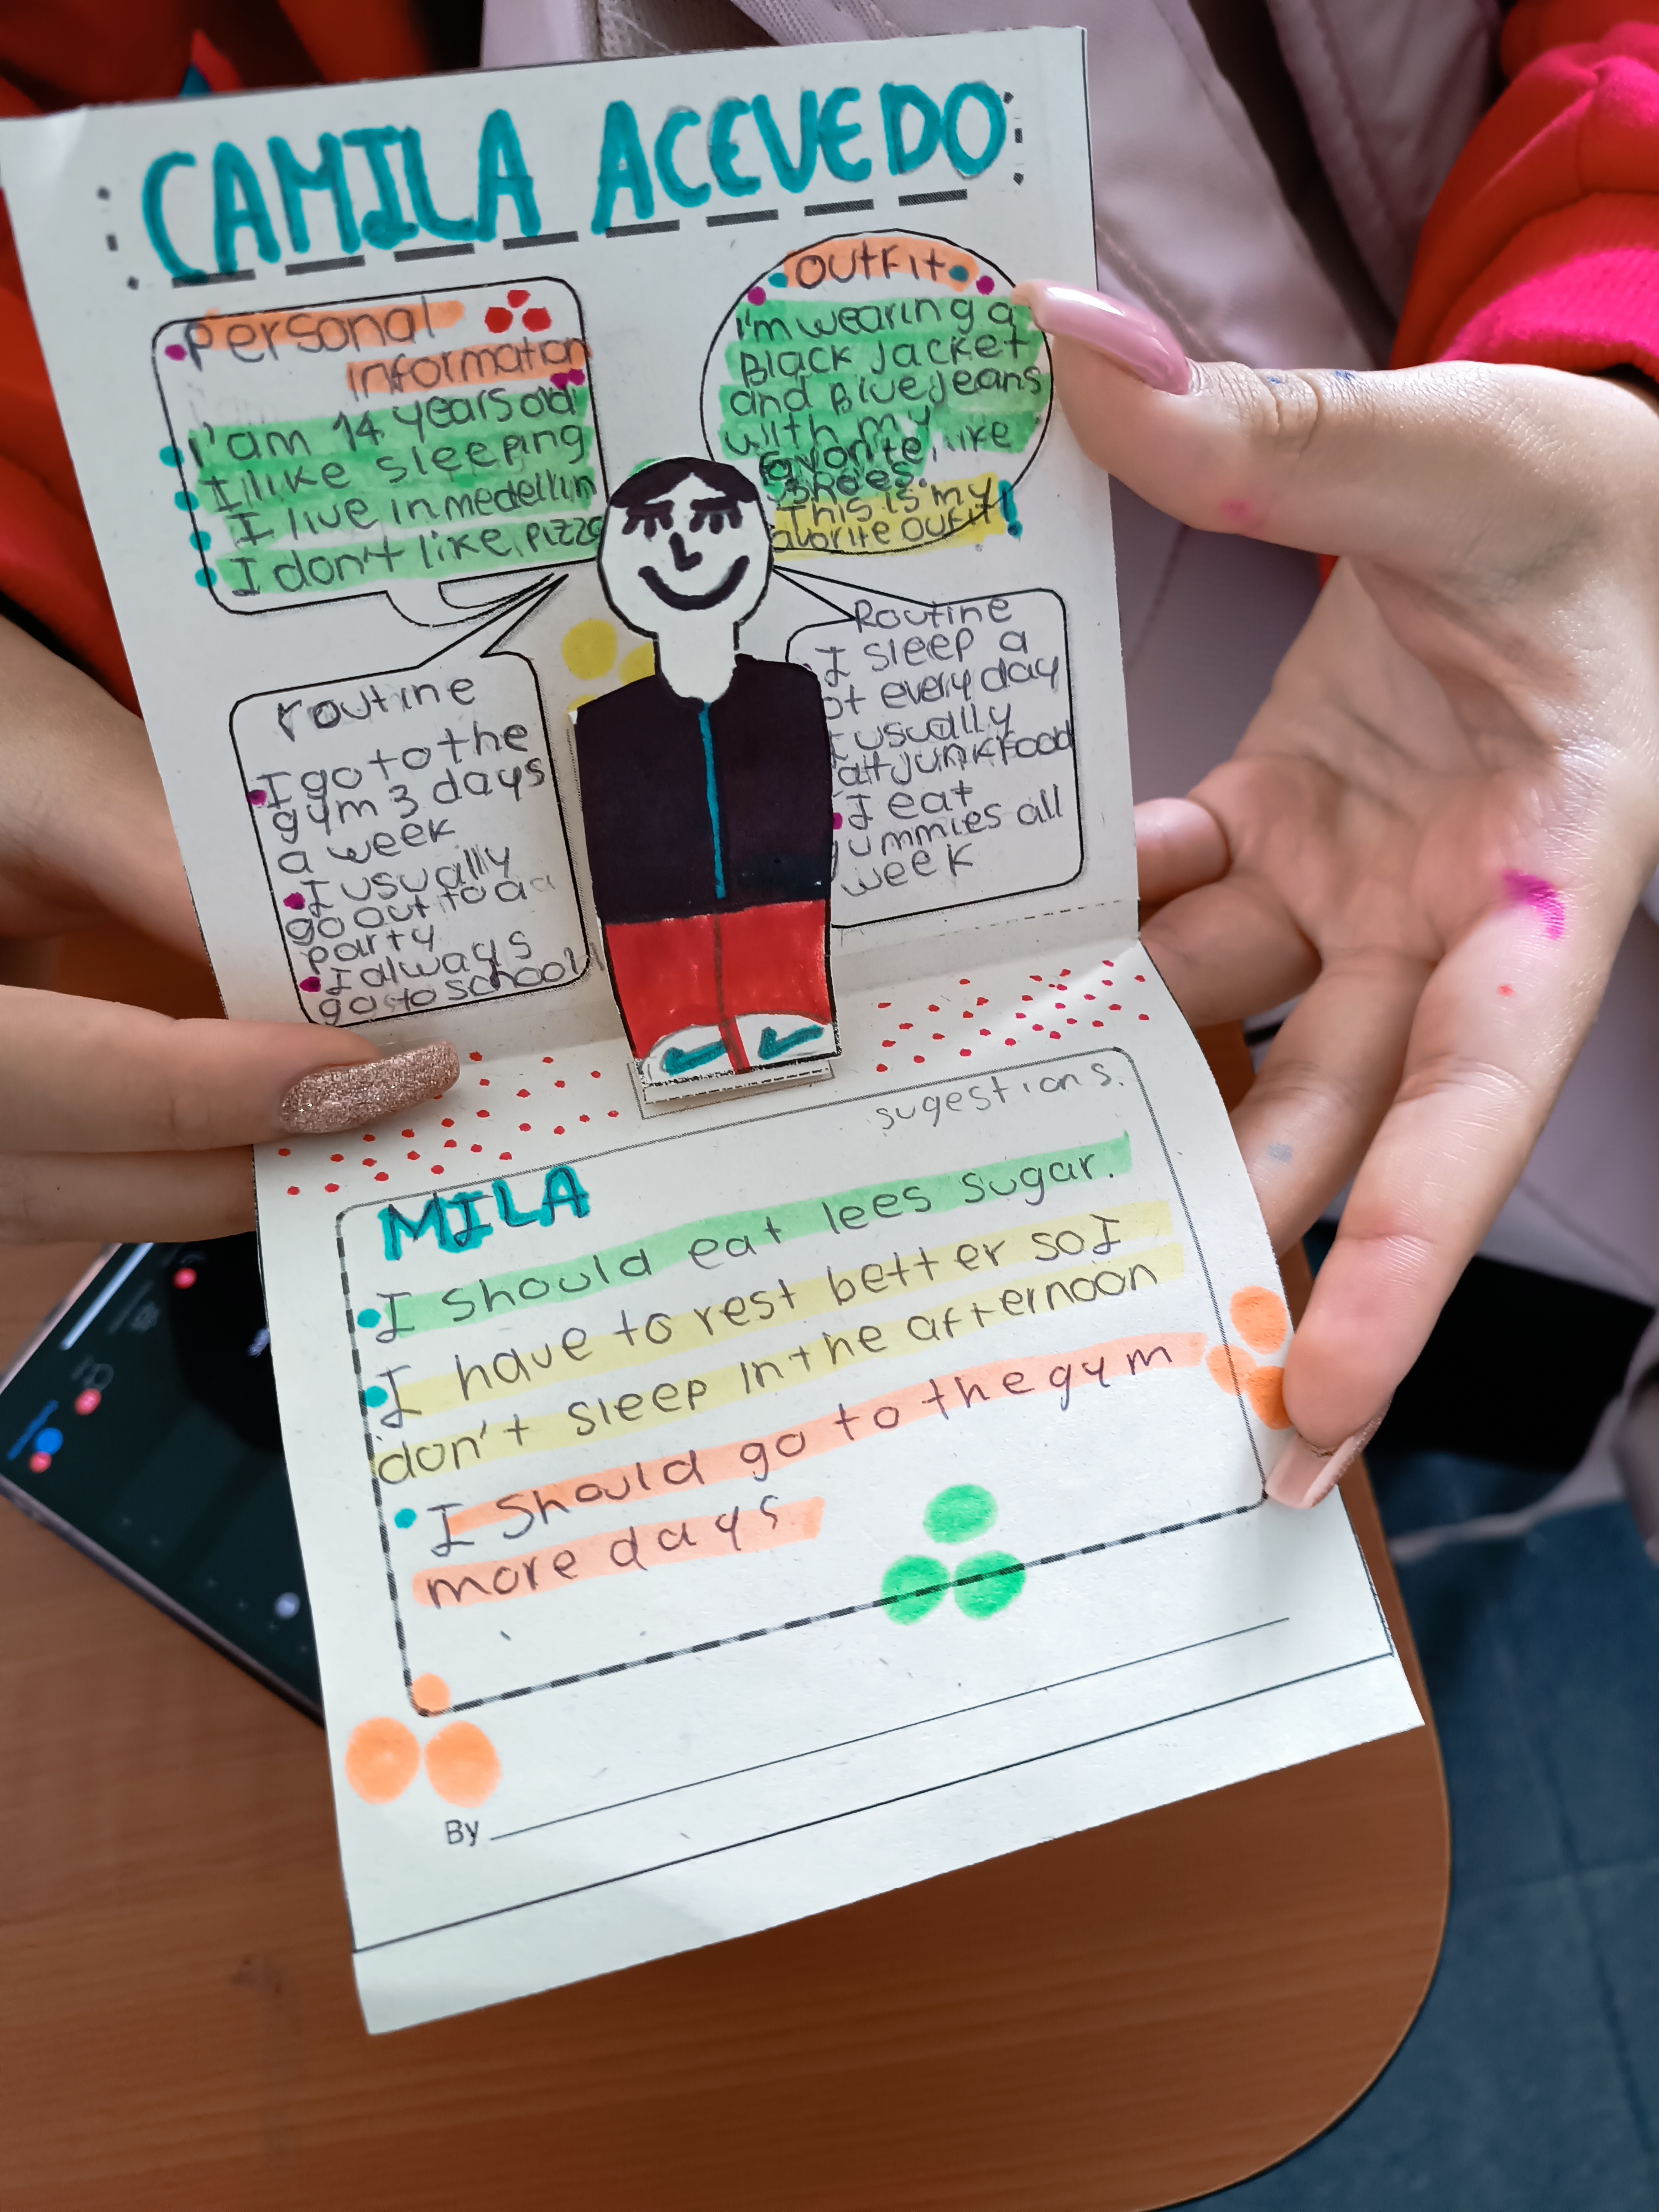 CAMILA ACEVEDO
Personal
information
I'am 14 years old
I like sleeping
I live in medellin
I don't like pizza
outfit
I'm wearing a
Black Jacket
and Blue Jeans
with my
favorite, like
shoes.
This is my
avorite outfit!
routine
I go to the
gym 3 days
a week
I usually
go out to a a
party
I always
go to school
Routine
I sleep a
ot every day
I usually
att junk food
I eat
gummies all
week
sugestions.
MILA
I should eat lees sugar.
I have to rest better so I
don't sleep in the afternoon
I should go to the gym
more days
By